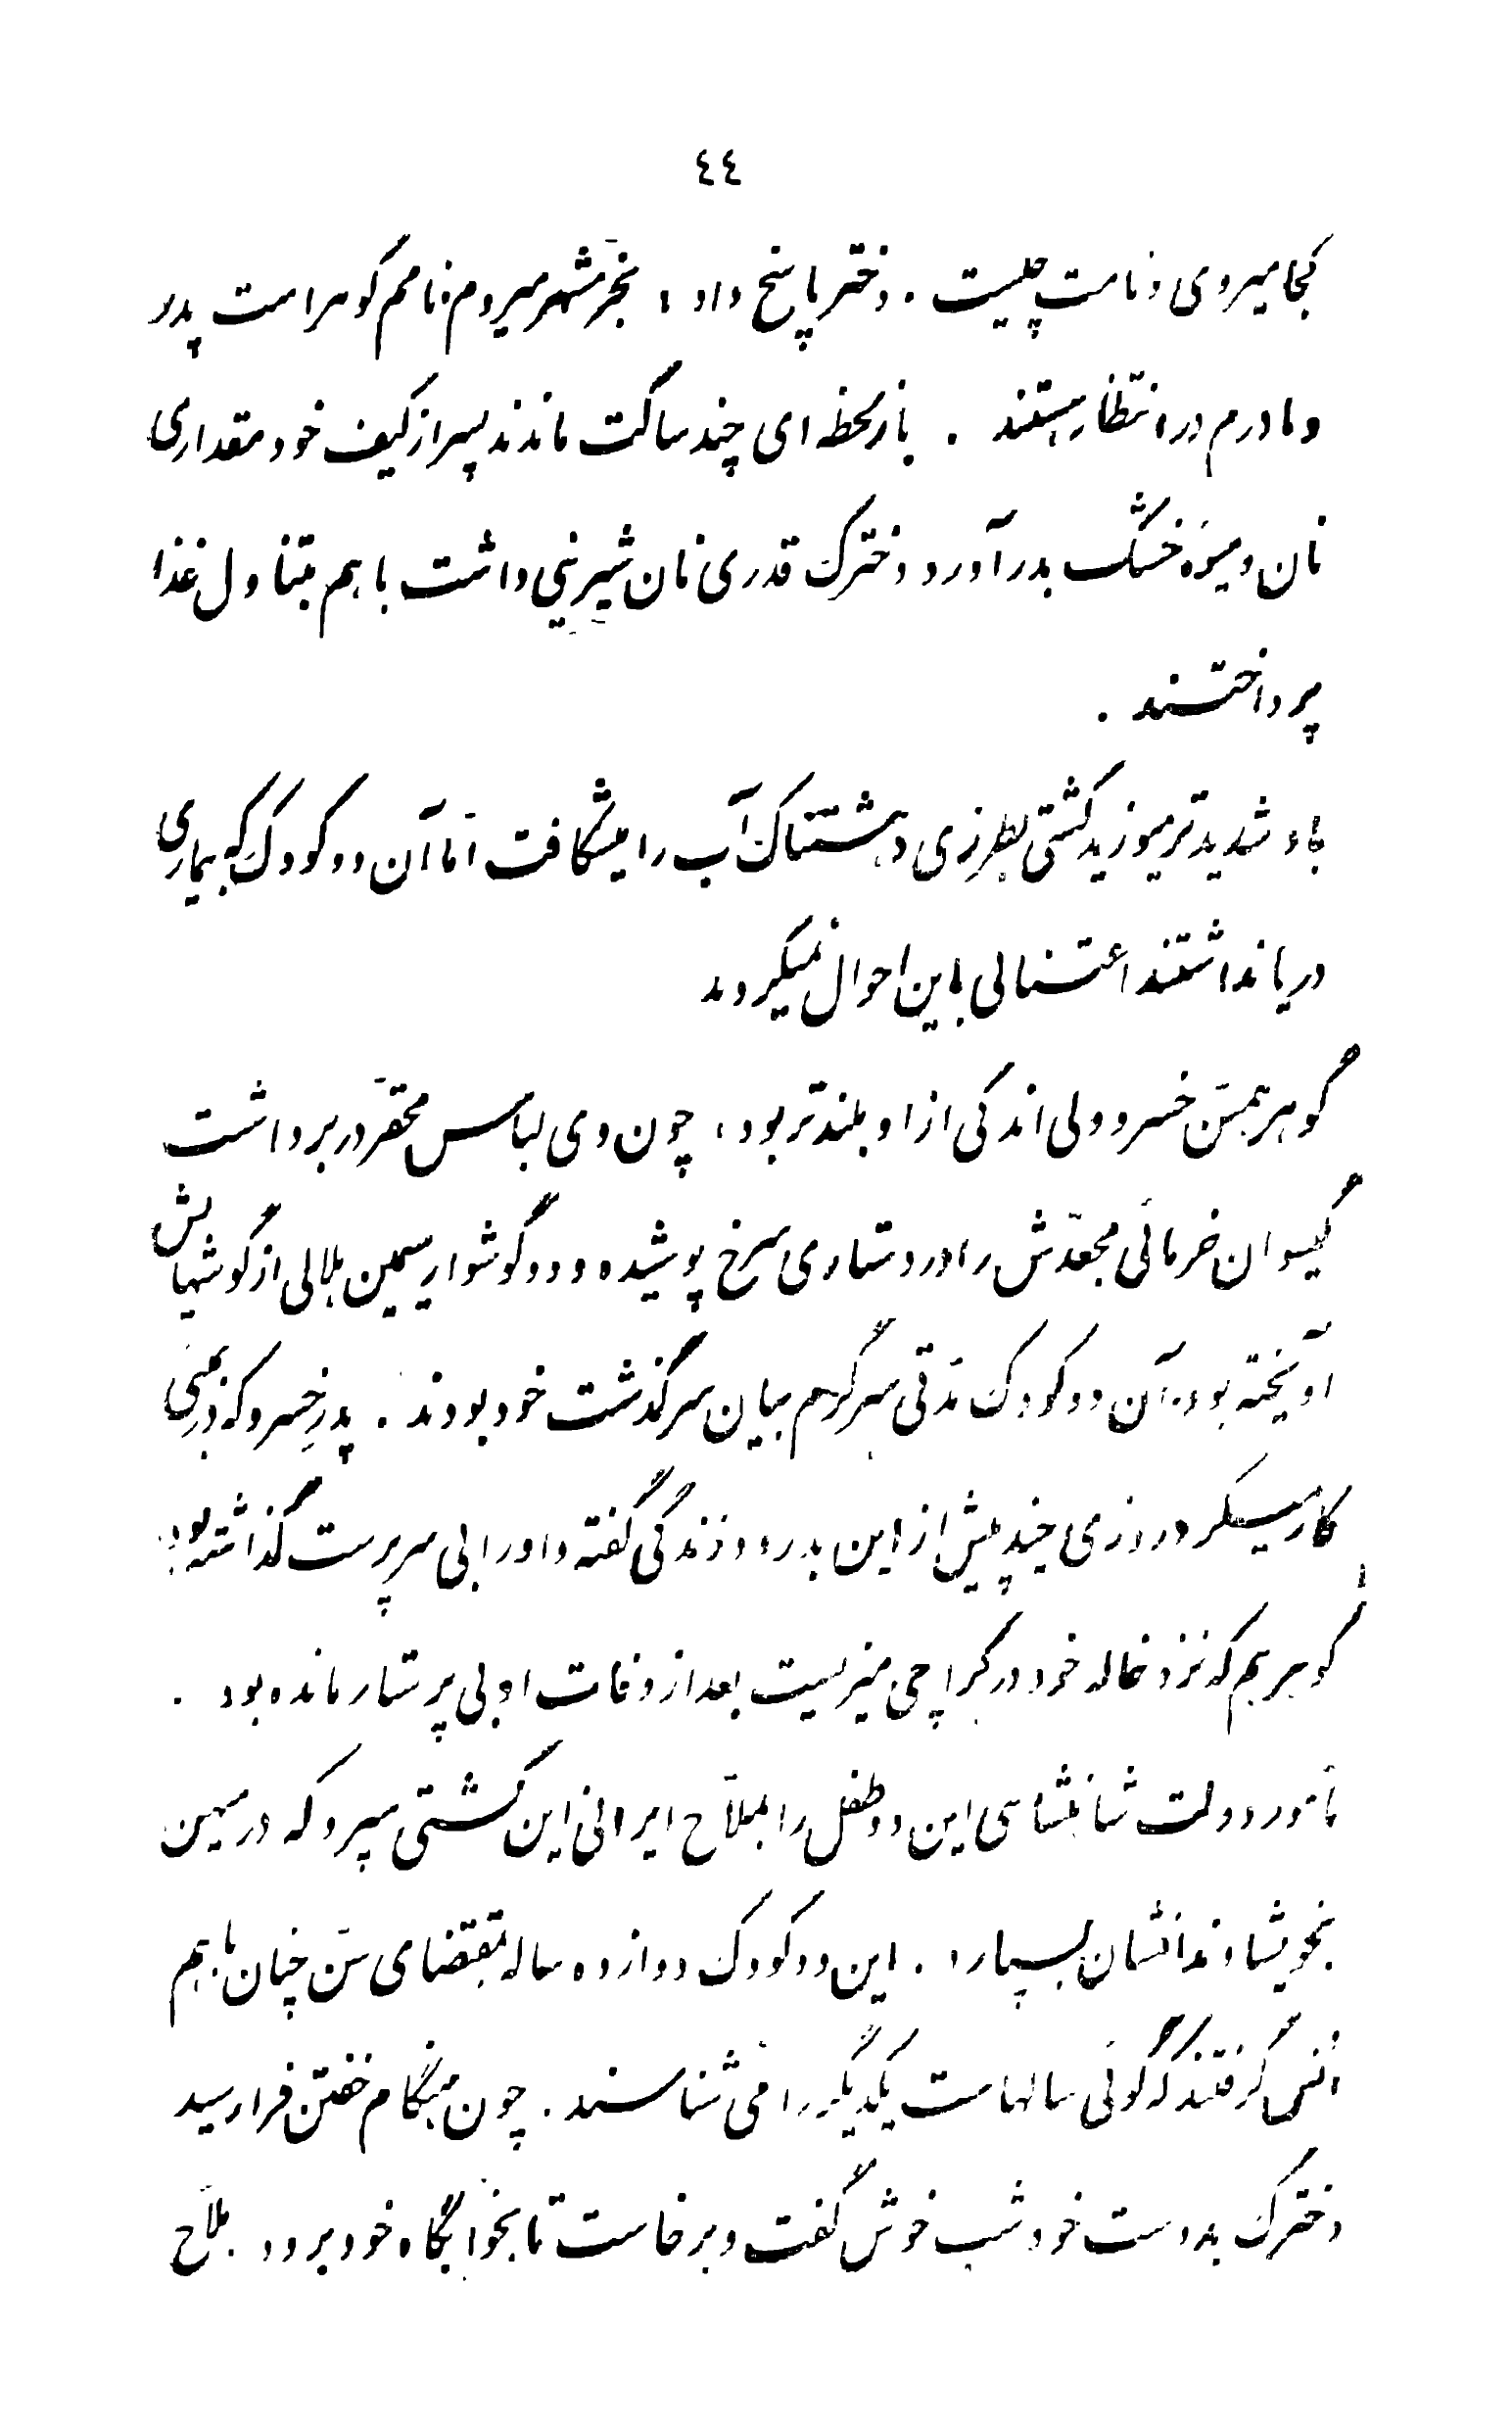 ٤٤
کجا میروی و نامت چیست . دختر پاسخ داد : بخرّمشهر میروم و نامم گوهر است پدر
و مادرم در انتظار هستند . باز لحظه ای چند ساکت ماندند پسر از کیف خود مقداری
نان و میوۀ خشک بدر آورد دخترک قدری نان شیرینی داشت با هم بتناول غذا
پرداختند .
باد شدیدتر میوزید کشتی بطرزی دهشتناک آب را میشکافت امّا آن دو کودک که بیماری
دریا نداشتند اعتنائی باین احوال نمیکردند
گوهر همسنّ خسرو ولی اندکی از او بلندتر بود ، چون وی لباس محقّر در بر داشت
گیسوان خرمائی مجعّدش را در دستاری سرخ پوشیده و دو گوشوار سیمین هلالی از گوشهایش
آویخته بود. آن دو کودک مدّتی سرگرم بیان سرگذشت خود بودند . پدر خسرو که در بمبئی
کار میکرد روزی چند پیش از این بدرود زندگی گفته و او را بی سرپرست گذاشته بود
گوهر هم که نزد خاله خود در کراچی میزیست بعد از وفات او بی پرستار مانده بود .
مأمور دولت شاهنشاهی این دو طفل را بملاّح ایرانی این کشتی سپرد که در میهن
بخویشاوندانشان بسپارد . این دو کودک دوازده ساله بمقتضای سنّ چنان با هم
اُنس گرفتند که گوئی سالهاست یکدیگر را می شناسند . چون هنگام خفتن فرا رسید
دخترک بدوست خود شب خوش گفت و برخاست تا بخوابگاه خود برود . ملاّح